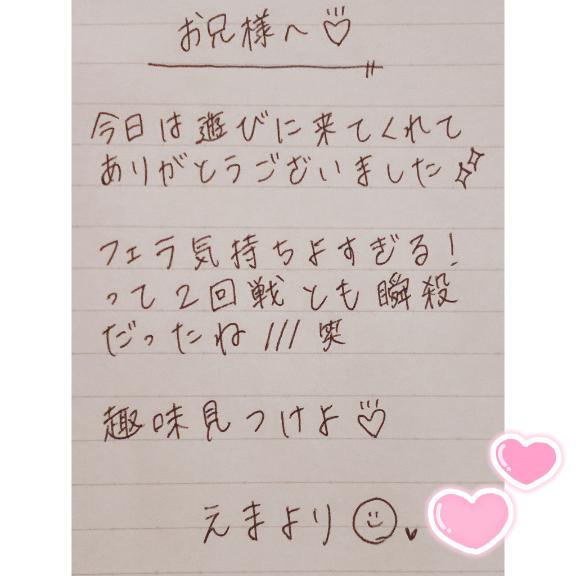 お兄様へ♡
今日は遊びに来てくれて
ありがとうございました✨
フェラ気持ちよすぎる!
って2回戦とも瞬殺
だったね///笑
趣味見つけよ♡
えまより☺♥